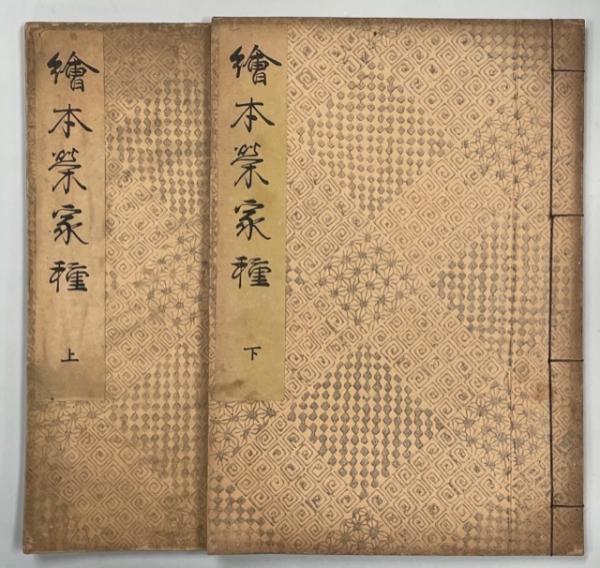 繪本榮家種
下
繪本榮家種
上